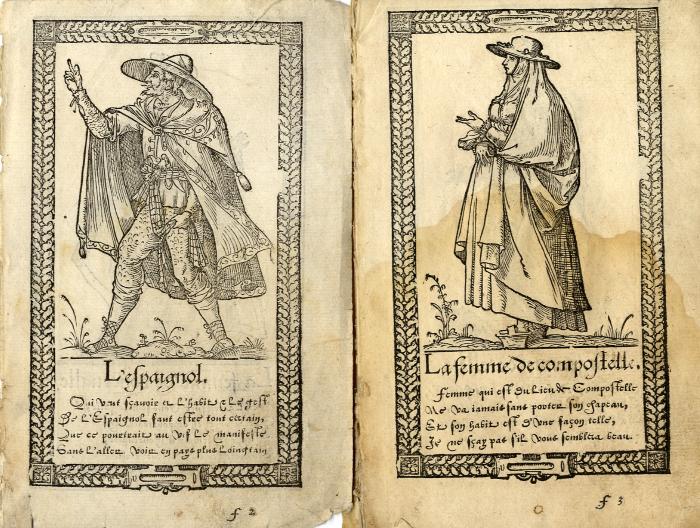 L'espaignol.
Qui veut sçavoir et l'habit & le gest
De l'Espaignol faut estre tout certain,
Que ce pourtrait au vif le manifeste
Sans l'aller voir en pays plus loingtain
f 2
La femme de compostelle.
Femme qui est du lieu de Compostelle
Ne va iamais sans porter son chapeau,
Et son habit est d'une façon telle,
Je ne sçay pas s'il vous semblera beau.
f 3